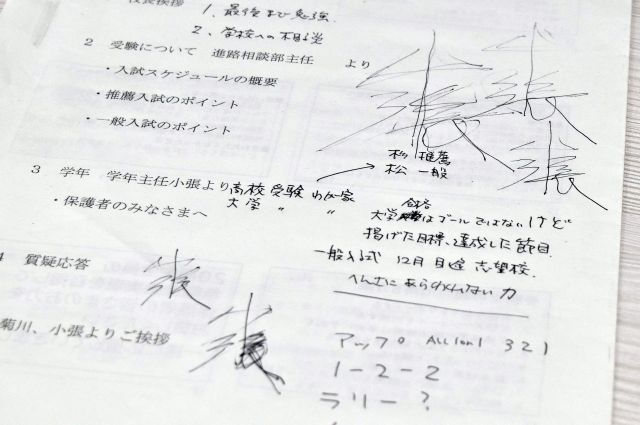 校長挨拶
1、最後まで勉強、
2、学校への相談
2 受験について 進路相談部主任 より
・入試スケジュールの概要
・推薦入試のポイント
・一般入試のポイント
小張
小張
小張
杉 推薦
松 一般
3 学年 学年主任小張より 高校受験 わが家
大学 〃 〃
・保護者のみなさまへ
合格
大学はゴールではないけど
掲げた目標、達成した節目
一般入試 12月 目途 志望校、
4 質疑応答
小張
菊川、小張よりご挨拶
小張
アップ 321
1-2-2
ラリー?